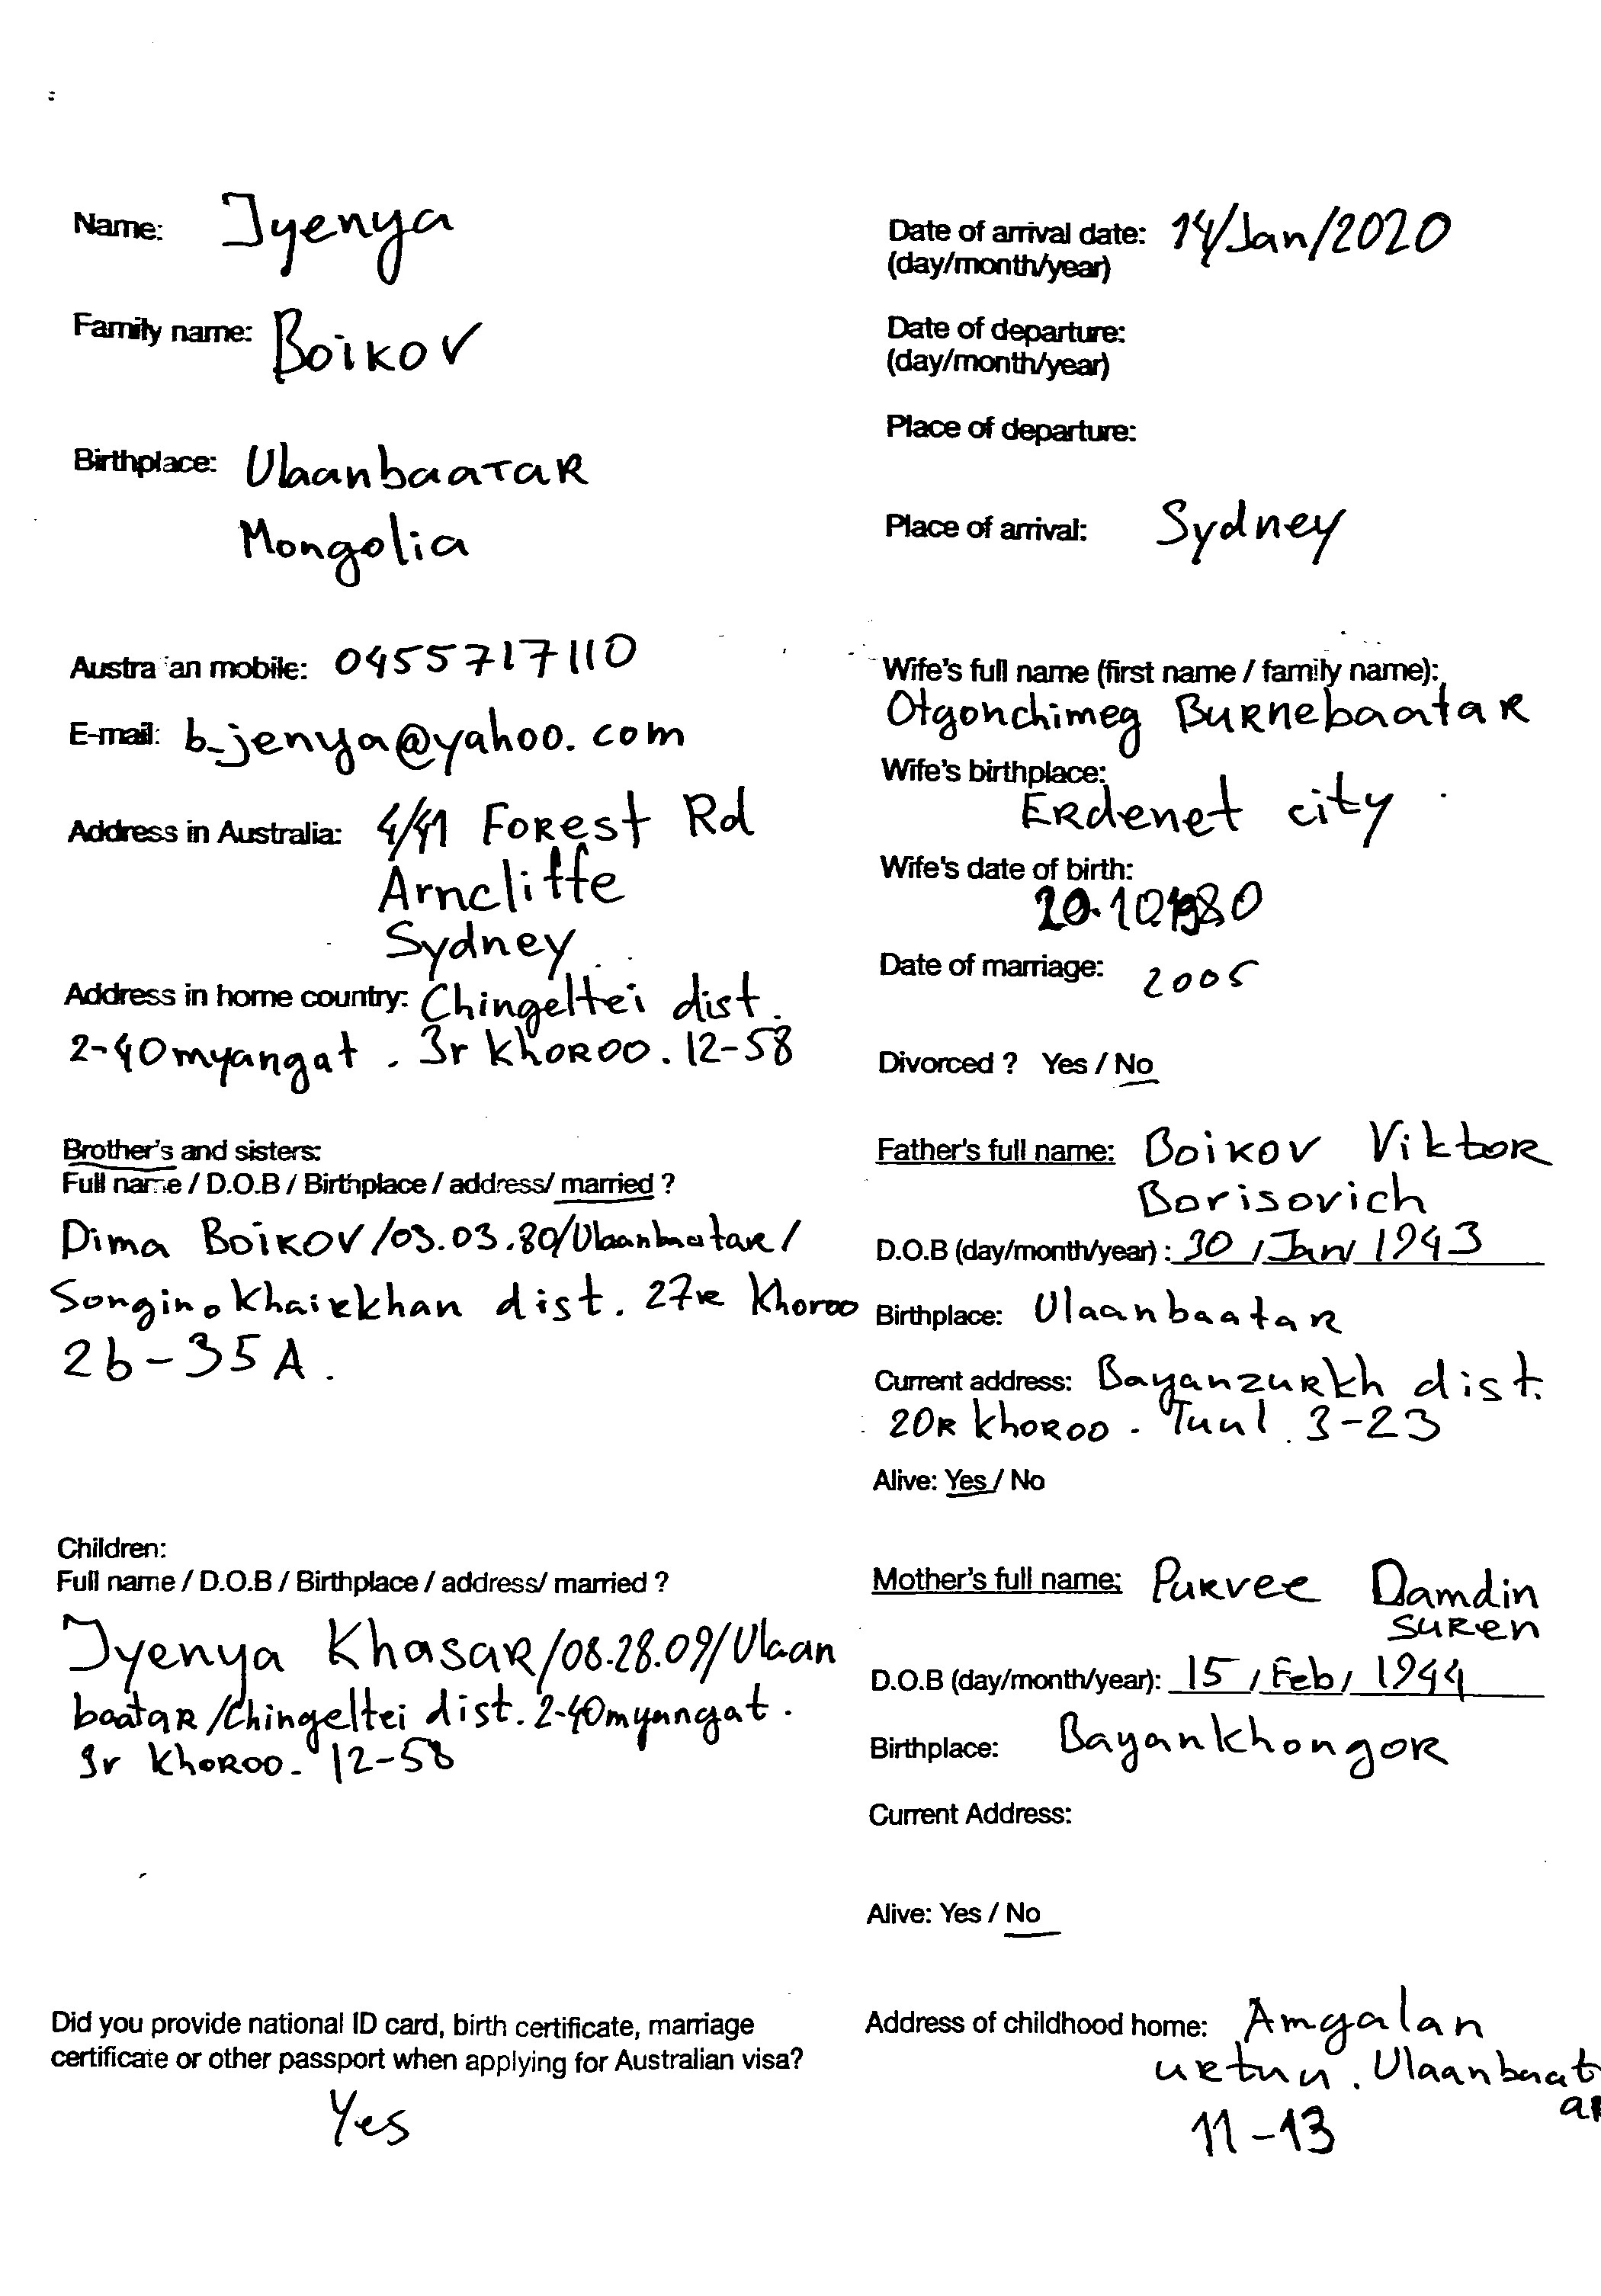 Name: Jyenya
Family name: Boikov
Birthplace: Ulaanbaatar
Mongolia
Austra an mobile: 0455717110
E-mail: b_jenya@yahoo.com
Address in Australia: 4/41 Forest Rd
Arncliffe
Sydney
Address in home country: Chingeltei dist.
2-40myangat. 3r khoroo. 12-58
Brother's and sisters:
Full name / D.O.B / Birthplace / address/ married ?
Dima Boikov/03.03.80/Ulaanbaatar/
Songinokhairkhan dist. 27r khoroo
2b-35A.
Children:
Full name / D.O.B / Birthplace / address/ married ?
Jyenya Khasar/08.28.09/Ulaan
baatar/Chingeltei dist. 2-40myangat.
3r khoroo. 12-58
Did you provide national ID card, birth certificate, marriage
certificate or other passport when applying for Australian visa?
Yes
Date of arrival date: 14/Jan/2020
(day/month/year)
Date of departure:
(day/month/year)
Place of departure:
Place of arrival: Sydney
Wife's full name (first name / family name):
Otgonchimeg Burnebaatar
Wife's birthplace:
Erdenet city
Wife's date of birth:
Date of marriage: 2005
Divorced ? Yes / No
Father's full name: Boikov Viktor
Borisovich
D.O.B (day/month/year) : 30 / Jan / 1943
Birthplace: Ulaanbaatar
Current address: Bayanzurkh dist.
20r khoroo. Tuul. 3-23
Alive: Yes / No
Mother's full name: Purvee Damdin
suren
D.O.B (day/month/year): 15 / Feb / 1944
Birthplace: Bayankhongor
Current Address:
Alive: Yes / No
Address of childhood home: Amgalan
urtuu. Ulaanbaat
ar
11-13